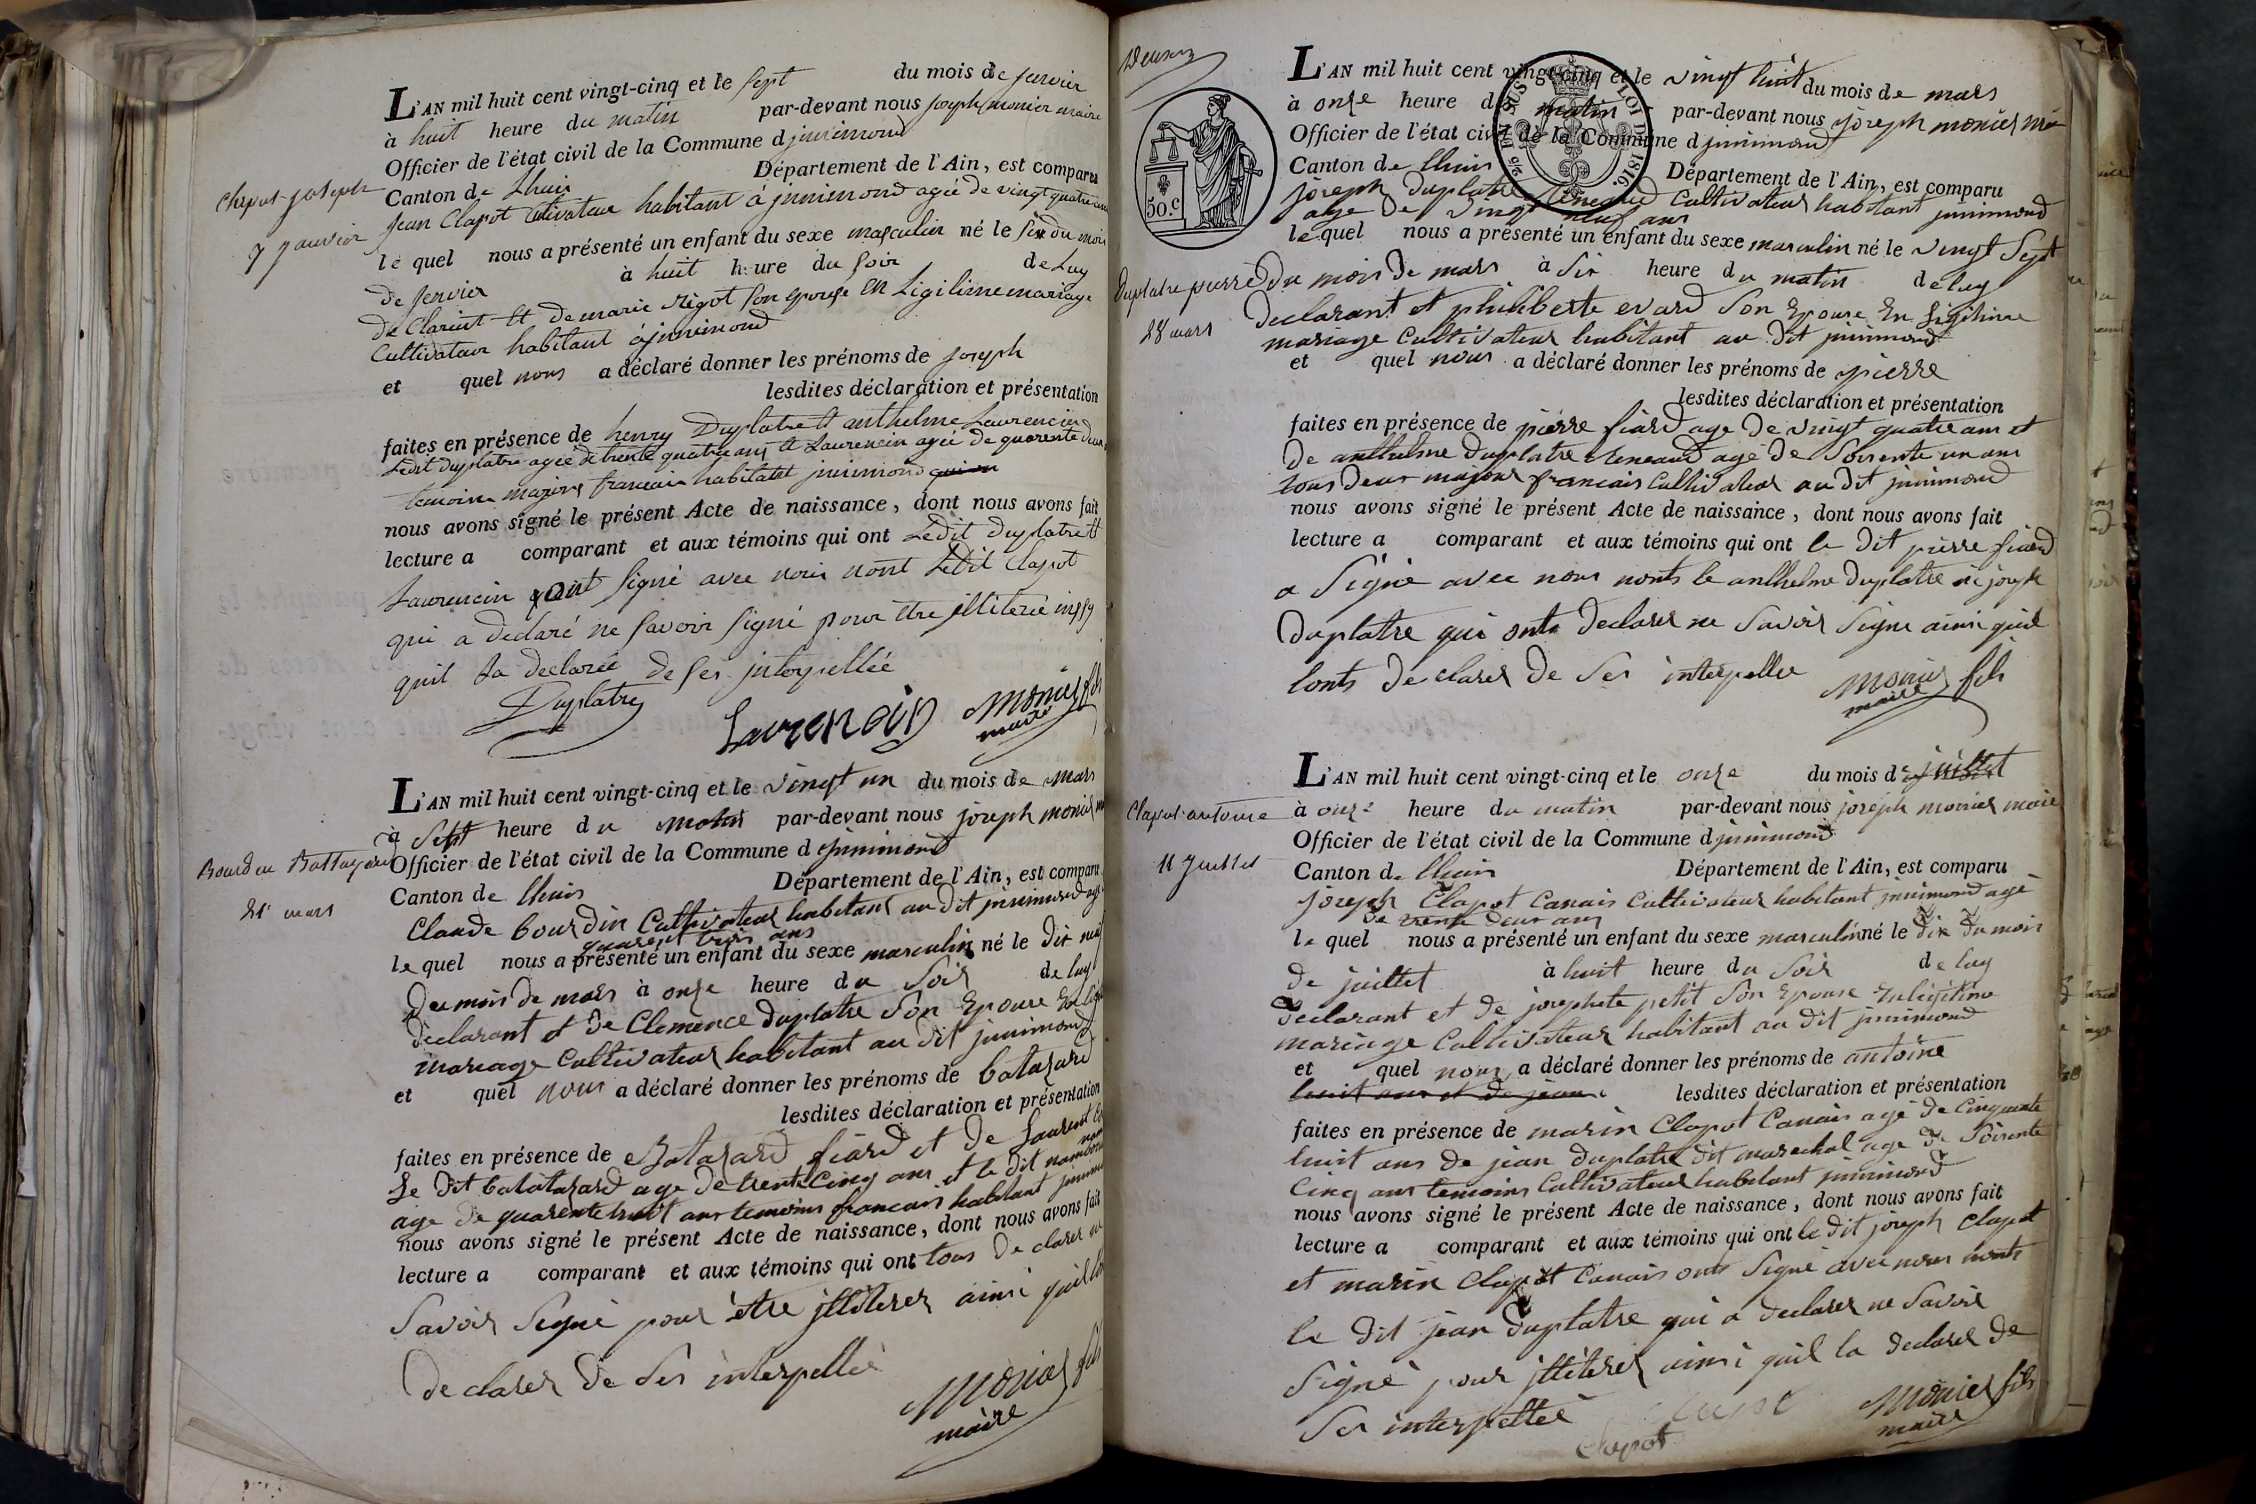 L'AN mil huit cent vingt-cinq et le sept du mois de janvier
à huit heure du matin par-devant nous joseph monier maire
Officier de l'état civil de la Commune d jnnimond
Canton de Lhuis Département de l'Ain, est comparu
Chapot joseph
7 janvier
jean Clapot Cultivateur habitant à jnnimond agée de vingt quatre ans
le quel nous a présenté un enfant du sexe masculin né le six du mois
de janvier à huit heure du soir de Luy
De Clarant et de marie Rigot son epouse en Ligitime mariage
Cultivateur habitant à jnnimond
et quel nous a déclaré donner les prénoms de joseph
lesdites déclaration et présentation
faites en présence de henry Duplatre et anthelme Laurencin
Ledit Duplatre agée de trente quatre ans et Laurencin agée de quarente deux
temoins majors francais habitant jnnimond
nous avons signé le présent Acte de naissance, dont nous avons fait
lecture a comparant et aux témoins qui ont Ledit Duplatre et
Laurencin ont signé avec nous nont Ledit Clapot
qui a declaré ne savoir signé pour être illiteré
quil La declarée de ses jnterpellée
Duplatre
Laurencin
Monier fils
maire
L'AN mil huit cent vingt-cinq et le vingt un du mois de mars
à sept heure du matin par-devant nous joseph monier
Officier de l'état civil de la Commune d jnnimond
Canton de lhuis Département de l'Ain, est comparu
Bourdin Baltazard
21 mars
Claude bourdin Cultivateur habitant au dit jnnimond age
quarent trois ans
le quel nous a présenté un enfant du sexe masculin né le dit neuf
du mois de mars à onze heure du soir de luy
declarant et de Clemence duplatre son Epouse En
mariage Cultivateur habitant au dit jnnimond
et quel nous a déclaré donner les prénoms de batazard
lesdites déclaration et présentation
faites en présence de Batazard fiard et de Laurent
Le dit batatazard age de trente Cinq ans et le dit
age de quarente huit ans temoins francais habitant
nous avons signé le présent Acte de naissance, dont nous avons fait
lecture a comparant et aux témoins qui ont tous De clarer ne
Savoir Signé pour être jlliterer ainsi quil
De clarer De Ses interpellé
Monier fils
maire
L'AN mil huit cent vingt-cinq et le vingt huit du mois de mars
à onze heure du matin par-devant nous joseph monier
Officier de l'état civil de la Commune d jnnimond
Canton de lhuis Département de l'Ain, est comparu
LOI DE 1816.
50.c
joseph duplatre Reneaud Cultivateur habitant jnnimond
age De vingt neuf ans
le quel nous a présenté un enfant du sexe masculin né le vingt Sept
duplatre pierre
28 mars
Du mois De mars à Six heure du matin de luy
Declarant et philiberte evard Son Epouse En Ligitime
mariage Cultivateur habitant au Dit jnnimond
et quel nous a déclaré donner les prénoms de pierre
lesdites déclaration et présentation
faites en présence de pierre fiard age De vingt quatre ans et
De anthelme Duplatre Reneaud age De Soisente un ans
tous Deux majeur francais Cultivateur au dit jnnimond
nous avons signé le présent Acte de naissance, dont nous avons fait
lecture a comparant et aux témoins qui ont le Dit pierre fiard
a Signé avec nous nonts le anthelme Duplatre ni joseph
Duplatre qui onts Declarer ne Savoir Signe ainsi quil
lonts De clarer De Ses interpelle
Monier fils
maire
L'AN mil huit cent vingt-cinq et le onze du mois de juillet
à onze heure du matin par-devant nous joseph monier maire
Officier de l'état civil de la Commune d jnnimond
Canton de lhuis Département de l'Ain, est comparu
Clapot antoine
11 Juillet
joseph Clapot Canais Cultivateur habitant jnnimond age
De trente Deux ans
le quel nous a présenté un enfant du sexe masculin né le dix du mois
de juillet à huit heure du Soir de luy
Declarant et de josephete petit Son Epouse En legitime
mariage Cultivateur habitant au dit jnnimond
et quel nous a déclaré donner les prénoms de antoine
huit ans et de jean lesdites déclaration et présentation
faites en présence de marin Clapot Canais age De Cinquante
huit ans De jean Duplatre dit marechal age De Soisente
Cinq ans temoins Cultivateur habitant jnnimond
nous avons signé le présent Acte de naissance, dont nous avons fait
lecture a comparant et aux témoins qui ont le dit joseph Clapot
et marin Clapot Canais onts Signé avec nous nonts
le Dit jean Duplatre qui a declarer ne Savoir
Signé pour jlliterer ainsi quil la declarer De
Ses interpellée
Clapot
Monier fils
maire